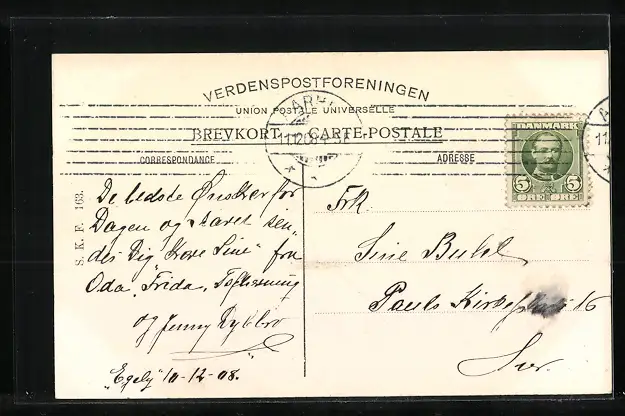 VERDENSPOSTFORENINGEN
UNION POSTALE UNIVERSELLE
BREVKORT CARTE-POSTALE
CORRESPONDANCE
ADRESSE
DANMARK
5 5
ØRE ØRE
S. K. F. 163.
De bedste Ønsker for
Dagen og Aaret sen,
des Dig "Kære Sine" fra
Oda, Frida,
og Jenny Rybbro
"Egely" 10-12-08.
Frk.
Sine Buhl
Pauls Kirkeplads 16